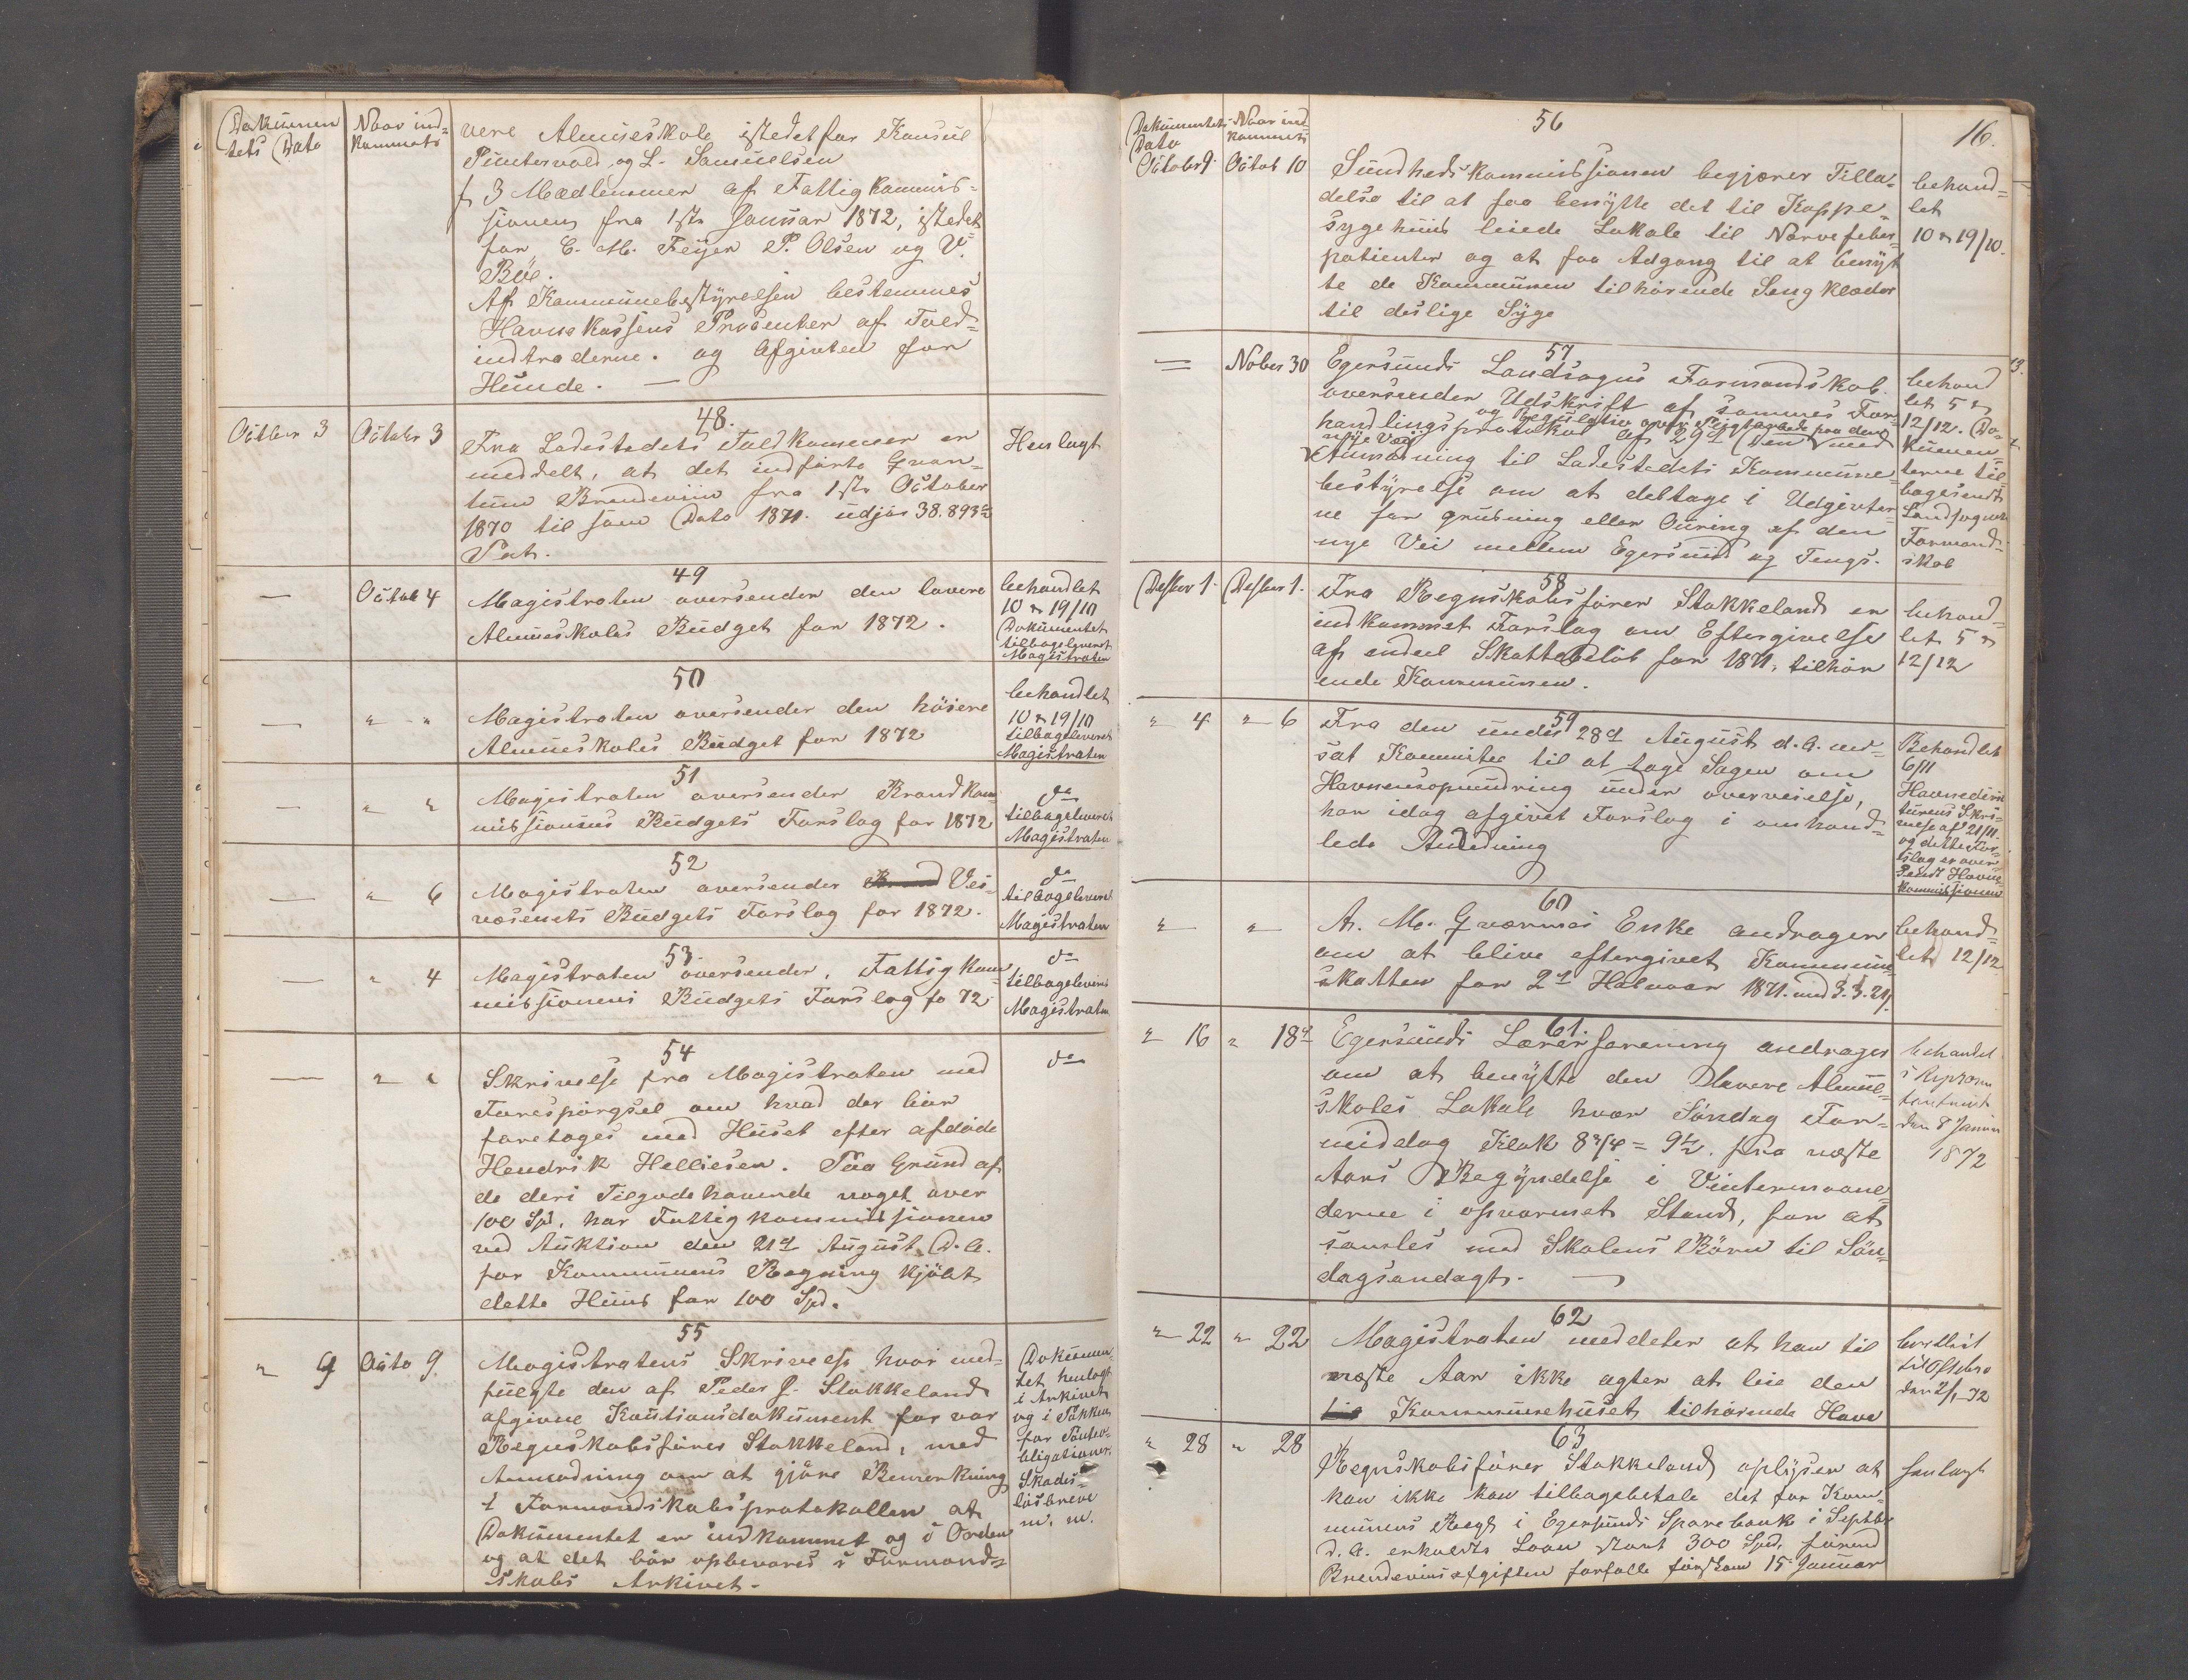 Dokumen
tets Dato
Naar ind-
kommet
vere Almueskole istedetfor Konsul
Puntervold og L. Samuelsen
f 3 Medlemmer af Fattigkommis-
sionen fra 1ste Januar 1872, istedet
for C. M. Feyer P. Olsen og V.
Böe.
Af Kommunebestyrelsen bestemmes
Havnekassens Procenter af Told-
indtraderne. og Afgivten for
Hunde. —
48.
Octber 3
Octobr 3
Fra Ladestedets Toldkammer er
meddelt, at det indførte Qvan-
tum Brendeviin fra 1ste October
1870 til samme Dato 1871. udgjør 38.893
Pot.
Henlagt
49
—
Octob 4
Magistraten oversender den lavere
Almueskoles Budget for 1872.
behandlet
10 & 19/10
Dokumentet
tilbageleveret
Magistraten
50
— " "
Magistraten oversender den höiere
Almueskoles Budget for 1872
behandlet
10 & 19/10
tilbageleveret
Magistraten
51
— " "
Magistraten oversender Brandkom
missionens Budgets Forslag for 1872
do
tilbageleveret
Magistraten
52
— " 6
Magistraten oversender Brand Vei-
væsenets Budgets Forslag for 1872.
do
tilbageleveret
Magistraten
53.
— " 4
Magistraten oversender. Fattigkom
missionens Budgets Forslag fo 72
do
tilbageleveret
Magistraten
54
— " "
Skrivelse fra Magistraten med
Forespörgsel om hvad der bör
foretages med Huset efter afdöde
Hendrik Helliesen. Paa Grund af
de deri Tilgodehavende noget over
100 Spd. har Fattigkommissionen
ved Auktion den 21de August D. A.
for Kommunens Regning kjöbt
dette Huus for 100 Spd.
do
55
" 9
Octo 9.
Magistratens Skrivelse hvor med-
fulgte den af Peder J. Stokkeland
afgivne Kautionsdokument for vor
Regnskabsfører Stokkeland, med
Anmodning om at gjöre Bemerkning
i Formandskabsprotokollen at
Dokumentet er indkommet og i Orden
og at det bör opbevares i Formand-
skabs Arkivet.
Dokumen-
tet henlagt
i Arkivet
og i Pakken
for Panteo-
bligationer.
Skades-
lösbreve
m. m.
16.
Dokumentets
Dato
Naar ind-
kommet
56
October 9.
Octob 10
Sundhedskommissionen begjærer Tilla-
delse til at faa benytte det til Koppe-
sygehuus leiede Lokale til Nervefeber-
patienter og at faa Adgang til at benyt
te de Kommunen tilhörende Sengklæder
til deslige Syge
behand-
let
10 & 19/10.
57
—
Nober 30
Egersunds Landsogns Formandskab.
oversender Udskrift af sammes For-
og Regulativ over Pligtarbeide paa den
handlingsprotokol af 29de Dennes med
nye Vei
Anmodning til Ladestedets Kommune-
bestyrelse om at deltage i Udgivter-
ne for grusning eller Ouring af den
nye Vei mellem Egersund og Tengs.
behand
let 5 &
12/12. Do-
kumen-
terne til-
bagesendt
Landsognets
Formand-
skab
58
Desber 1.
Desber 1.
Fra Regnskabsfører Stokkeland er
indkommet Forslag om Eftergivelse
af endeel Skattebelöb for 1871, tilhör
ende Kommunen.
behand-
let 5 &
12/12
59
" 4
" 6
Fra den under 28de August d. A. ned-
sat Kommitee til at tage Sagen om
Havnensopmudring under overveielse,
har idag afgivet Forslag i omhand-
lede Anledning
Behandlet
6/11
Havnedirek
turens Skri-
velse af 21/11.
og dette For-
slag er over-
sendt Havne-
kommissionen
60
" "
A. M. Qværnnes Enke andrager
om at blive eftergivet Kommune-
skatten for 2det Halvaar 1871. med 3. 3. 21/.
behand-
let 12/12
61.
" 16
" 18de
Egersunds Lærerforening andrager
om at benytte den Lavere Almue-
skoles Lokale hver Söndag For-
middag Klok 8 3/4 - 9 1/2. fra næste
Aars Begyndelse i Vintermaane-
derne i opvarmet Stand, for at
samles med Skolens Börn til Sön-
dagsandagt.
behandlet
i Represen
tantmöde
den 8 Januar
1872
62
" 22
" 22
Magistraten meddeler at han til
næste Aar ikke agter at leie den
til Kommunehuset tilhörende Have
den 2/1-72
63
" 28
" 28
Regnskabsfører Stokkeland oplyser at
han ikke kan tilbagebetale det for Kom-
munens Regn i Egersunds Sparebank i Septbr
d. A. erholdte Laan stort 300 Spd. förend
Brendevinsafgiften forfalle förstkom 15 Januar
henlagt